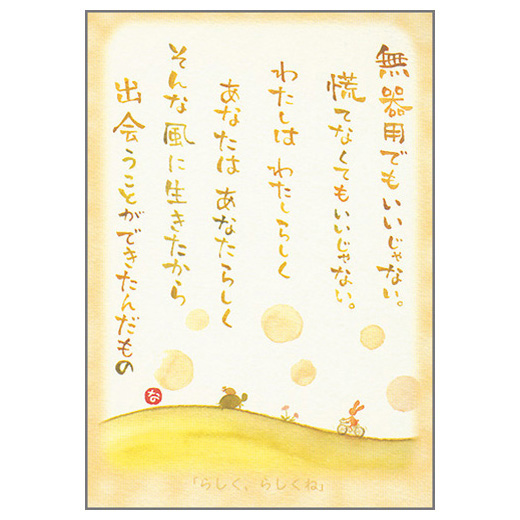 無器用でもいいじゃない。
慌てなくてもいいじゃない。
わたしは わたしらしく
あなたは あなたらしく
そんな風に生きたから
出会うことができたんだもの
な
「らしく、らしくね」